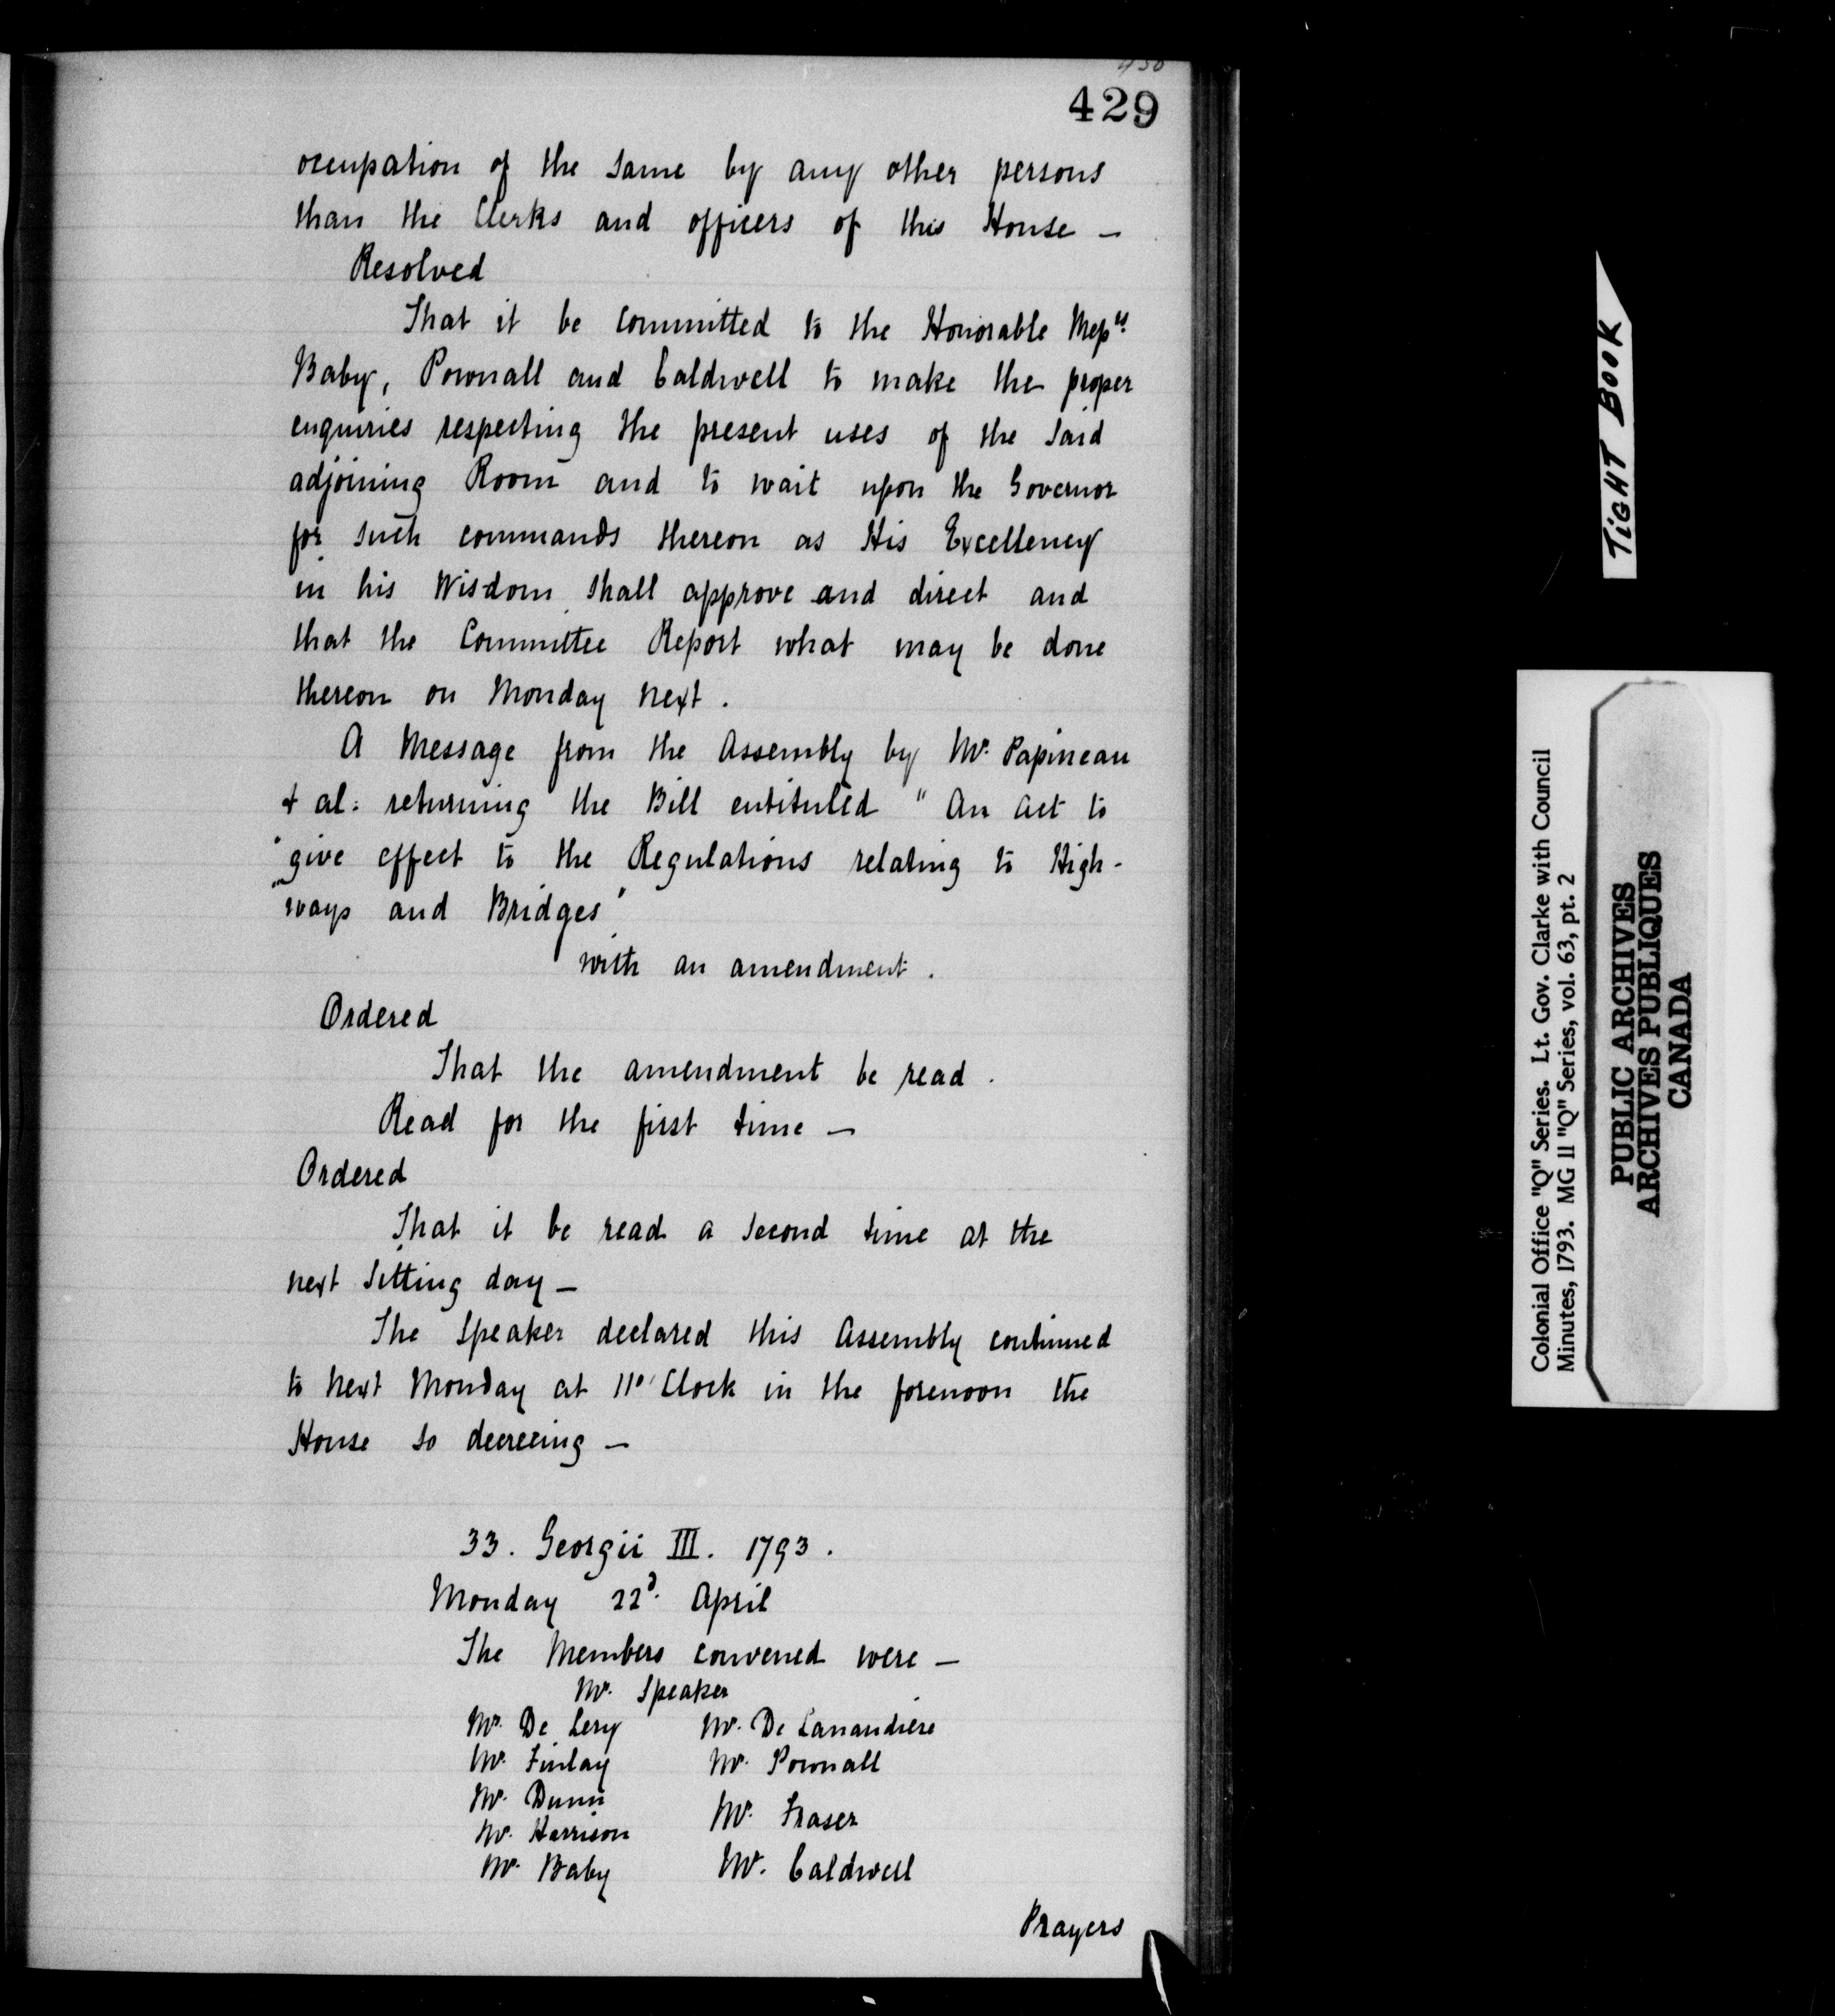 429
occupation of the same by any other persons
than the Clerks and officers of this House —
Resolved
That it be committed to the Honorable Messrs.
Baby, Pownall and Caldwell to make the proper
enquiries respecting the present uses of the said
adjoining Room and to wait upon the Governor
for such commands thereon as His Excellency
in his Wisdom shall approve and direct and
that the Committee Report what may be done
thereon on Monday next.
A Message from the Assembly by Mr. Papineau
& al: returning the Bill entituled "An Act to
"give effect to the Regulations relating to High-
"ways and Bridges"
with an amendment.
Ordered
That the amendment be read.
Read for the first time —
Ordered
That it be read a second time at the
next sitting day —
The Speaker declared this Assembly continued
to next Monday at 11 o'Clock in the forenoon the
House so decreeing —
33. Georgii III. 1793.
Monday 22d. April
The Members convened were —
Mr. Speaker
Mr. De Lery Mr. De Lanaudiere
Mr. Finlay Mr. Pownall
Mr. Dunn
Mr. Fraser
Mr. Harrison
Mr. Baby Mr. Caldwell
Prayers
TIGHT BOOK
Colonial Office "Q" Series. Lt. Gov. Clarke with Council
Minutes, 1793. MG 11 "Q" Series, vol. 63, pt. 2
PUBLIC ARCHIVES
ARCHIVES PUBLIQUES
CANADA